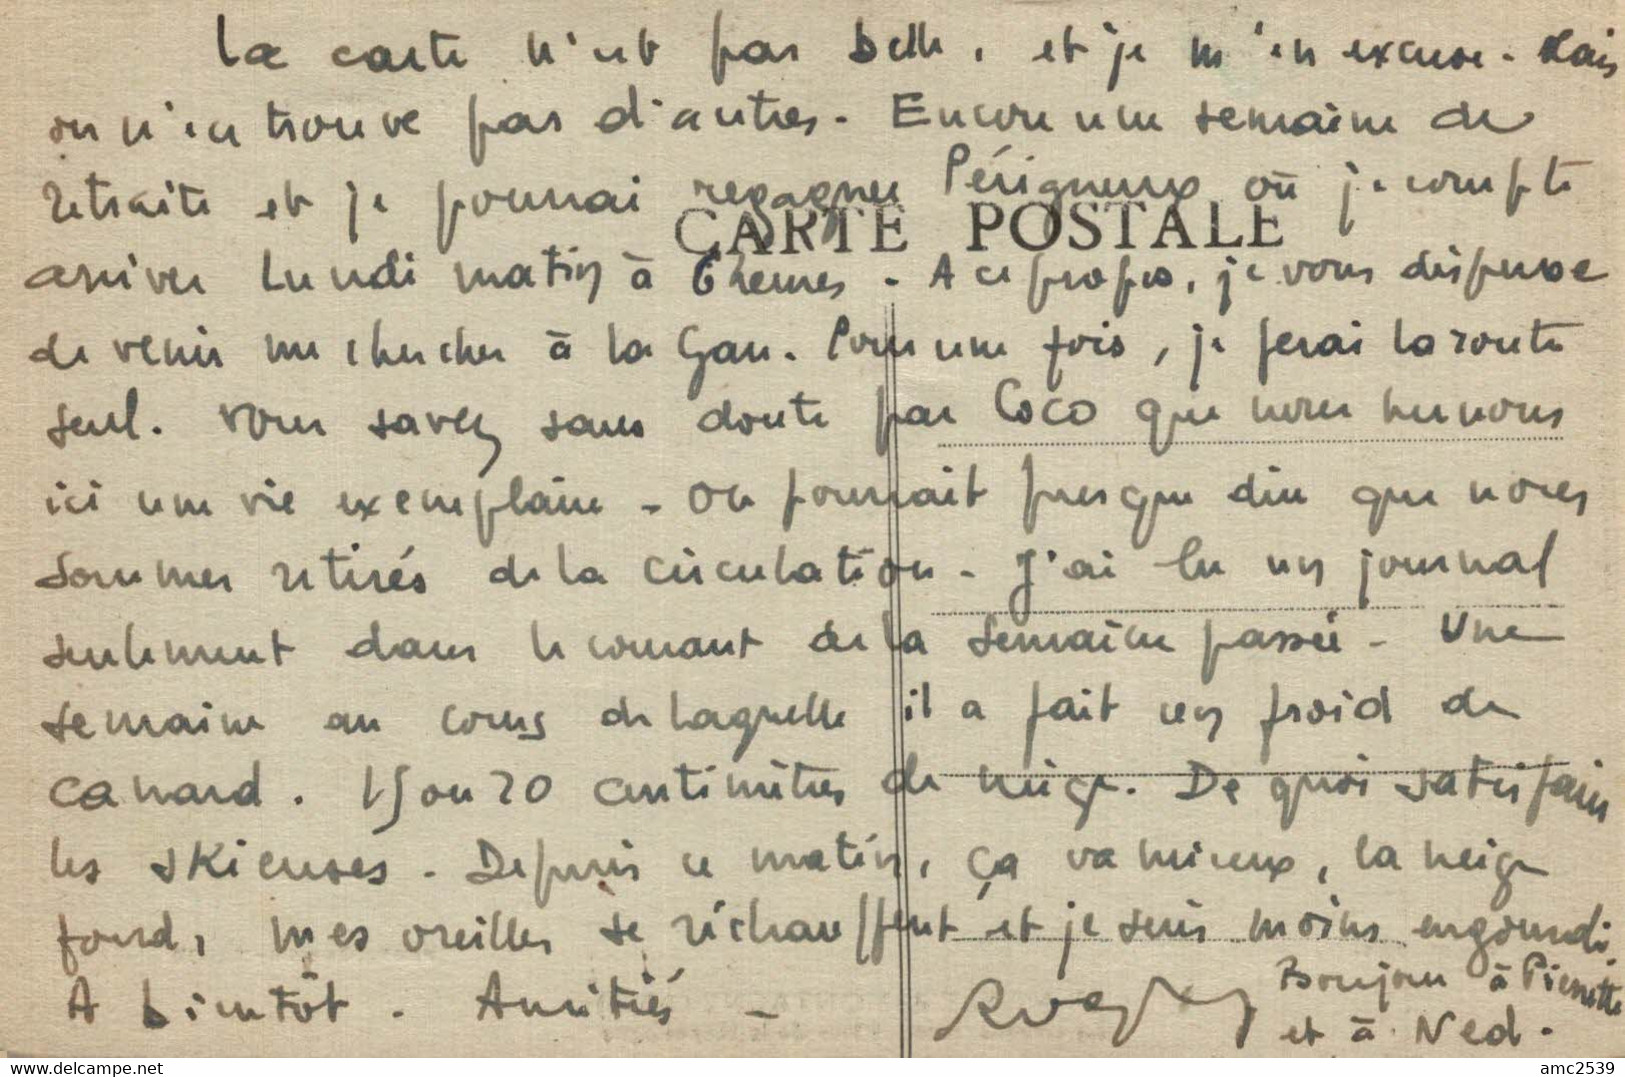 La carte n'est pas belle, et je m'en excuse. Mais
on n'en trouve pas d'autres. Encore une semaine de
retraite et je pourrai regagner Périgueux où je compte
CARTE POSTALE
arriver Lundi matin à 6 heures. A ce propos, je vous dispense
de venir me chercher à la Gare. Pour une fois, je ferai la route
seul. Vous savez sans doute par Coco que nous menons
ici une vie exemplaire. On pourrait presque dire que nous
sommes retirés de la circulation. J'ai lu un journal
seulement dans le courant de la semaine passée. Une
semaine au cours de laquelle il a fait un froid de
canard. 15 ou 20 centimètres de neige. De quoi satisfaire
les skieuses. Depuis ce matin, ça va mieux, la neige
fond, mes oreilles se réchauffent et je suis moins engourdi.
A bientôt. Amitiés -
Bonjour à Pierrette
et à Ned.
www.delcampe.net
amc2539